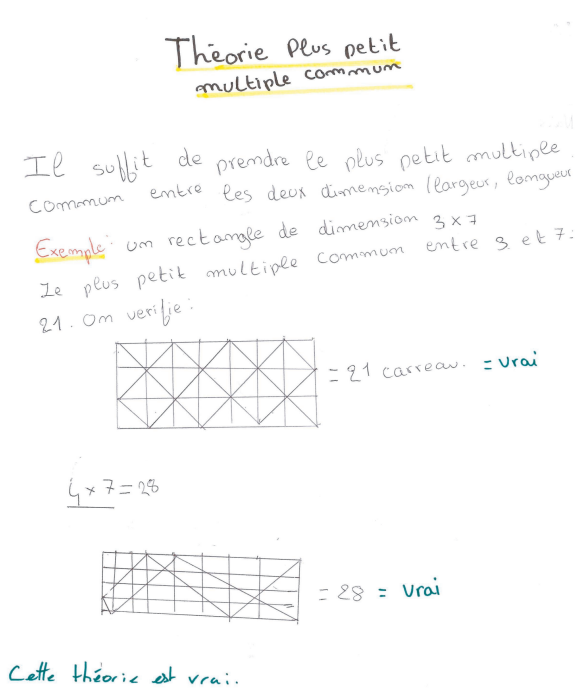 Théorie Plus petit
multiple commun
Il suffit de prendre le plus petit multiple
commun entre les deux dimension (largeur, longueur
Exemple: un rectangle de dimension 3 x 7
Le plus petit multiple commun entre 3 et 7 =
21. On verifie :
= 21 carreau. = vrai
4 x 7 = 28
= 28 = vrai
Cette théorie est vrai.